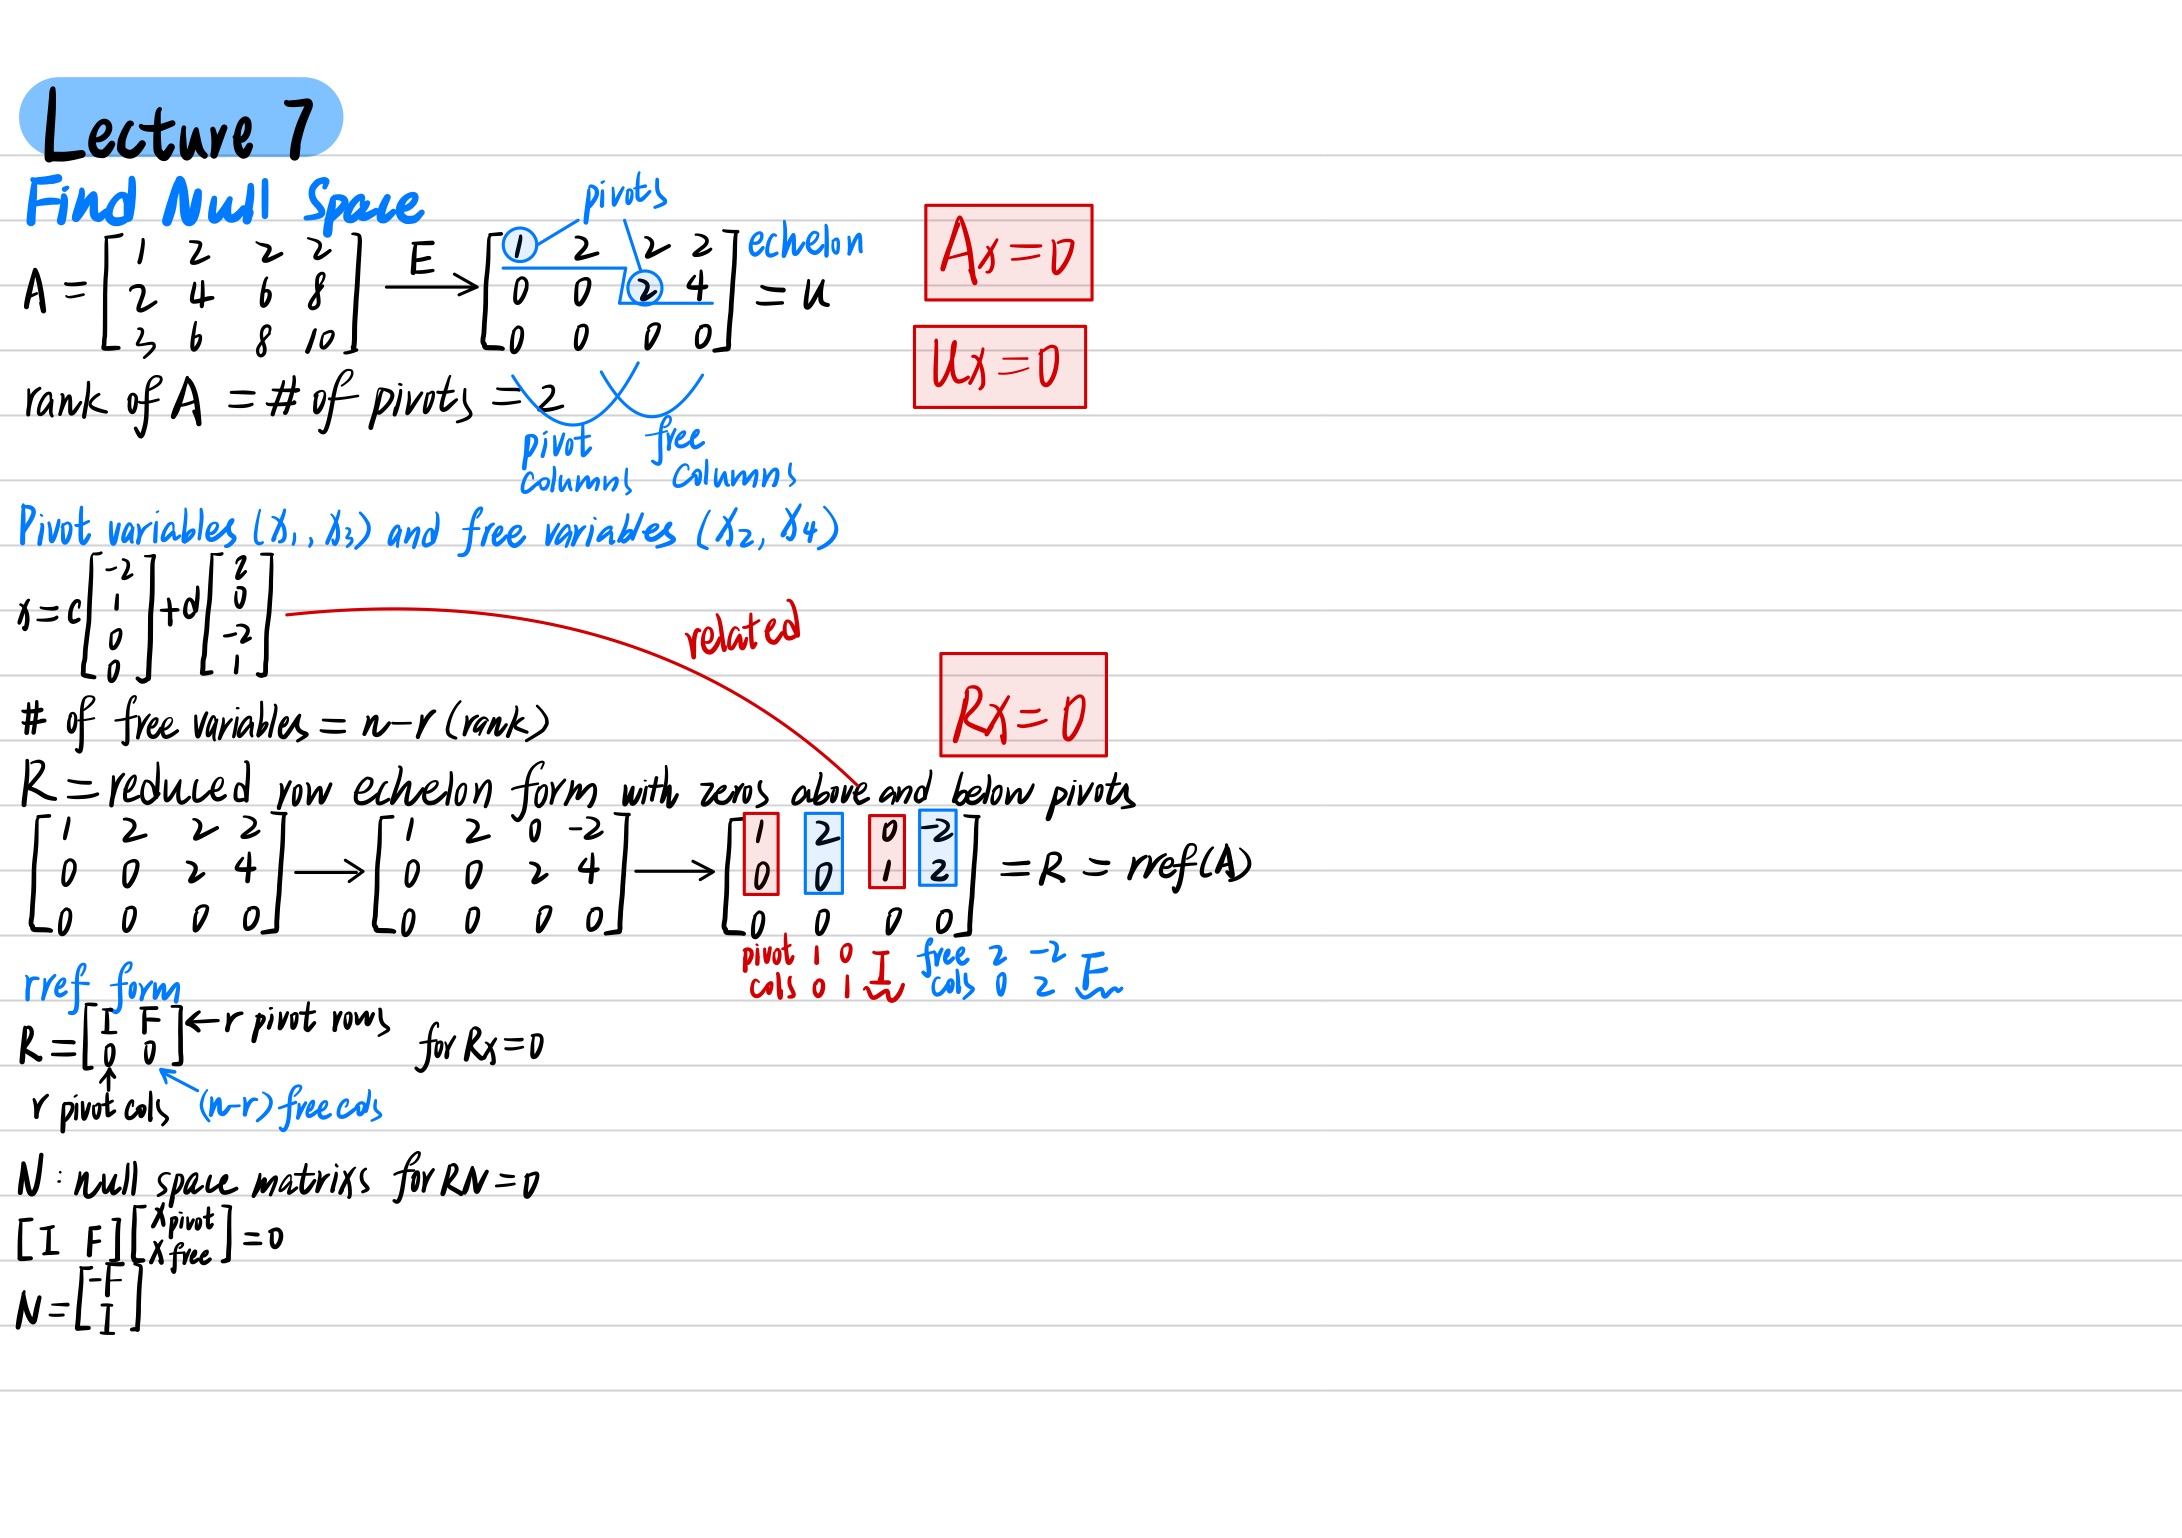 Lecture 7
Find Null Space
pivots
A = [1 2 2 2; 2 4 6 8; 3 6 8 10] E → [1 2 2 2; 0 0 2 4; 0 0 0 0] = U echelon
Ax=0
Ux=0
rank of A = # of pivots = 2
pivot columns
free columns
Pivot variables (x₁, x₃) and free variables (x₂, x₄)
x = c[-2; 1; 0; 0] + d[2; 0; -2; 1]
related
# of free variables = n-r (rank)
Rx=0
R = reduced row echelon form with zeros above and below pivots
[1 2 2 2; 0 0 2 4; 0 0 0 0] → [1 2 0 -2; 0 0 2 4; 0 0 0 0] → [1 2 0 -2; 0 0 1 2; 0 0 0 0] = R = rref(A)
pivot 1 0 I free 2 -2 F
cols 0 1 cols 0 2
rref form
R = [I F; 0 0] ← r pivot rows for Rx=0
r pivot cols (n-r) free cols
N : null space matrixs for RN=0
[I F][x pivot; x free] = 0
N = [-F; I]